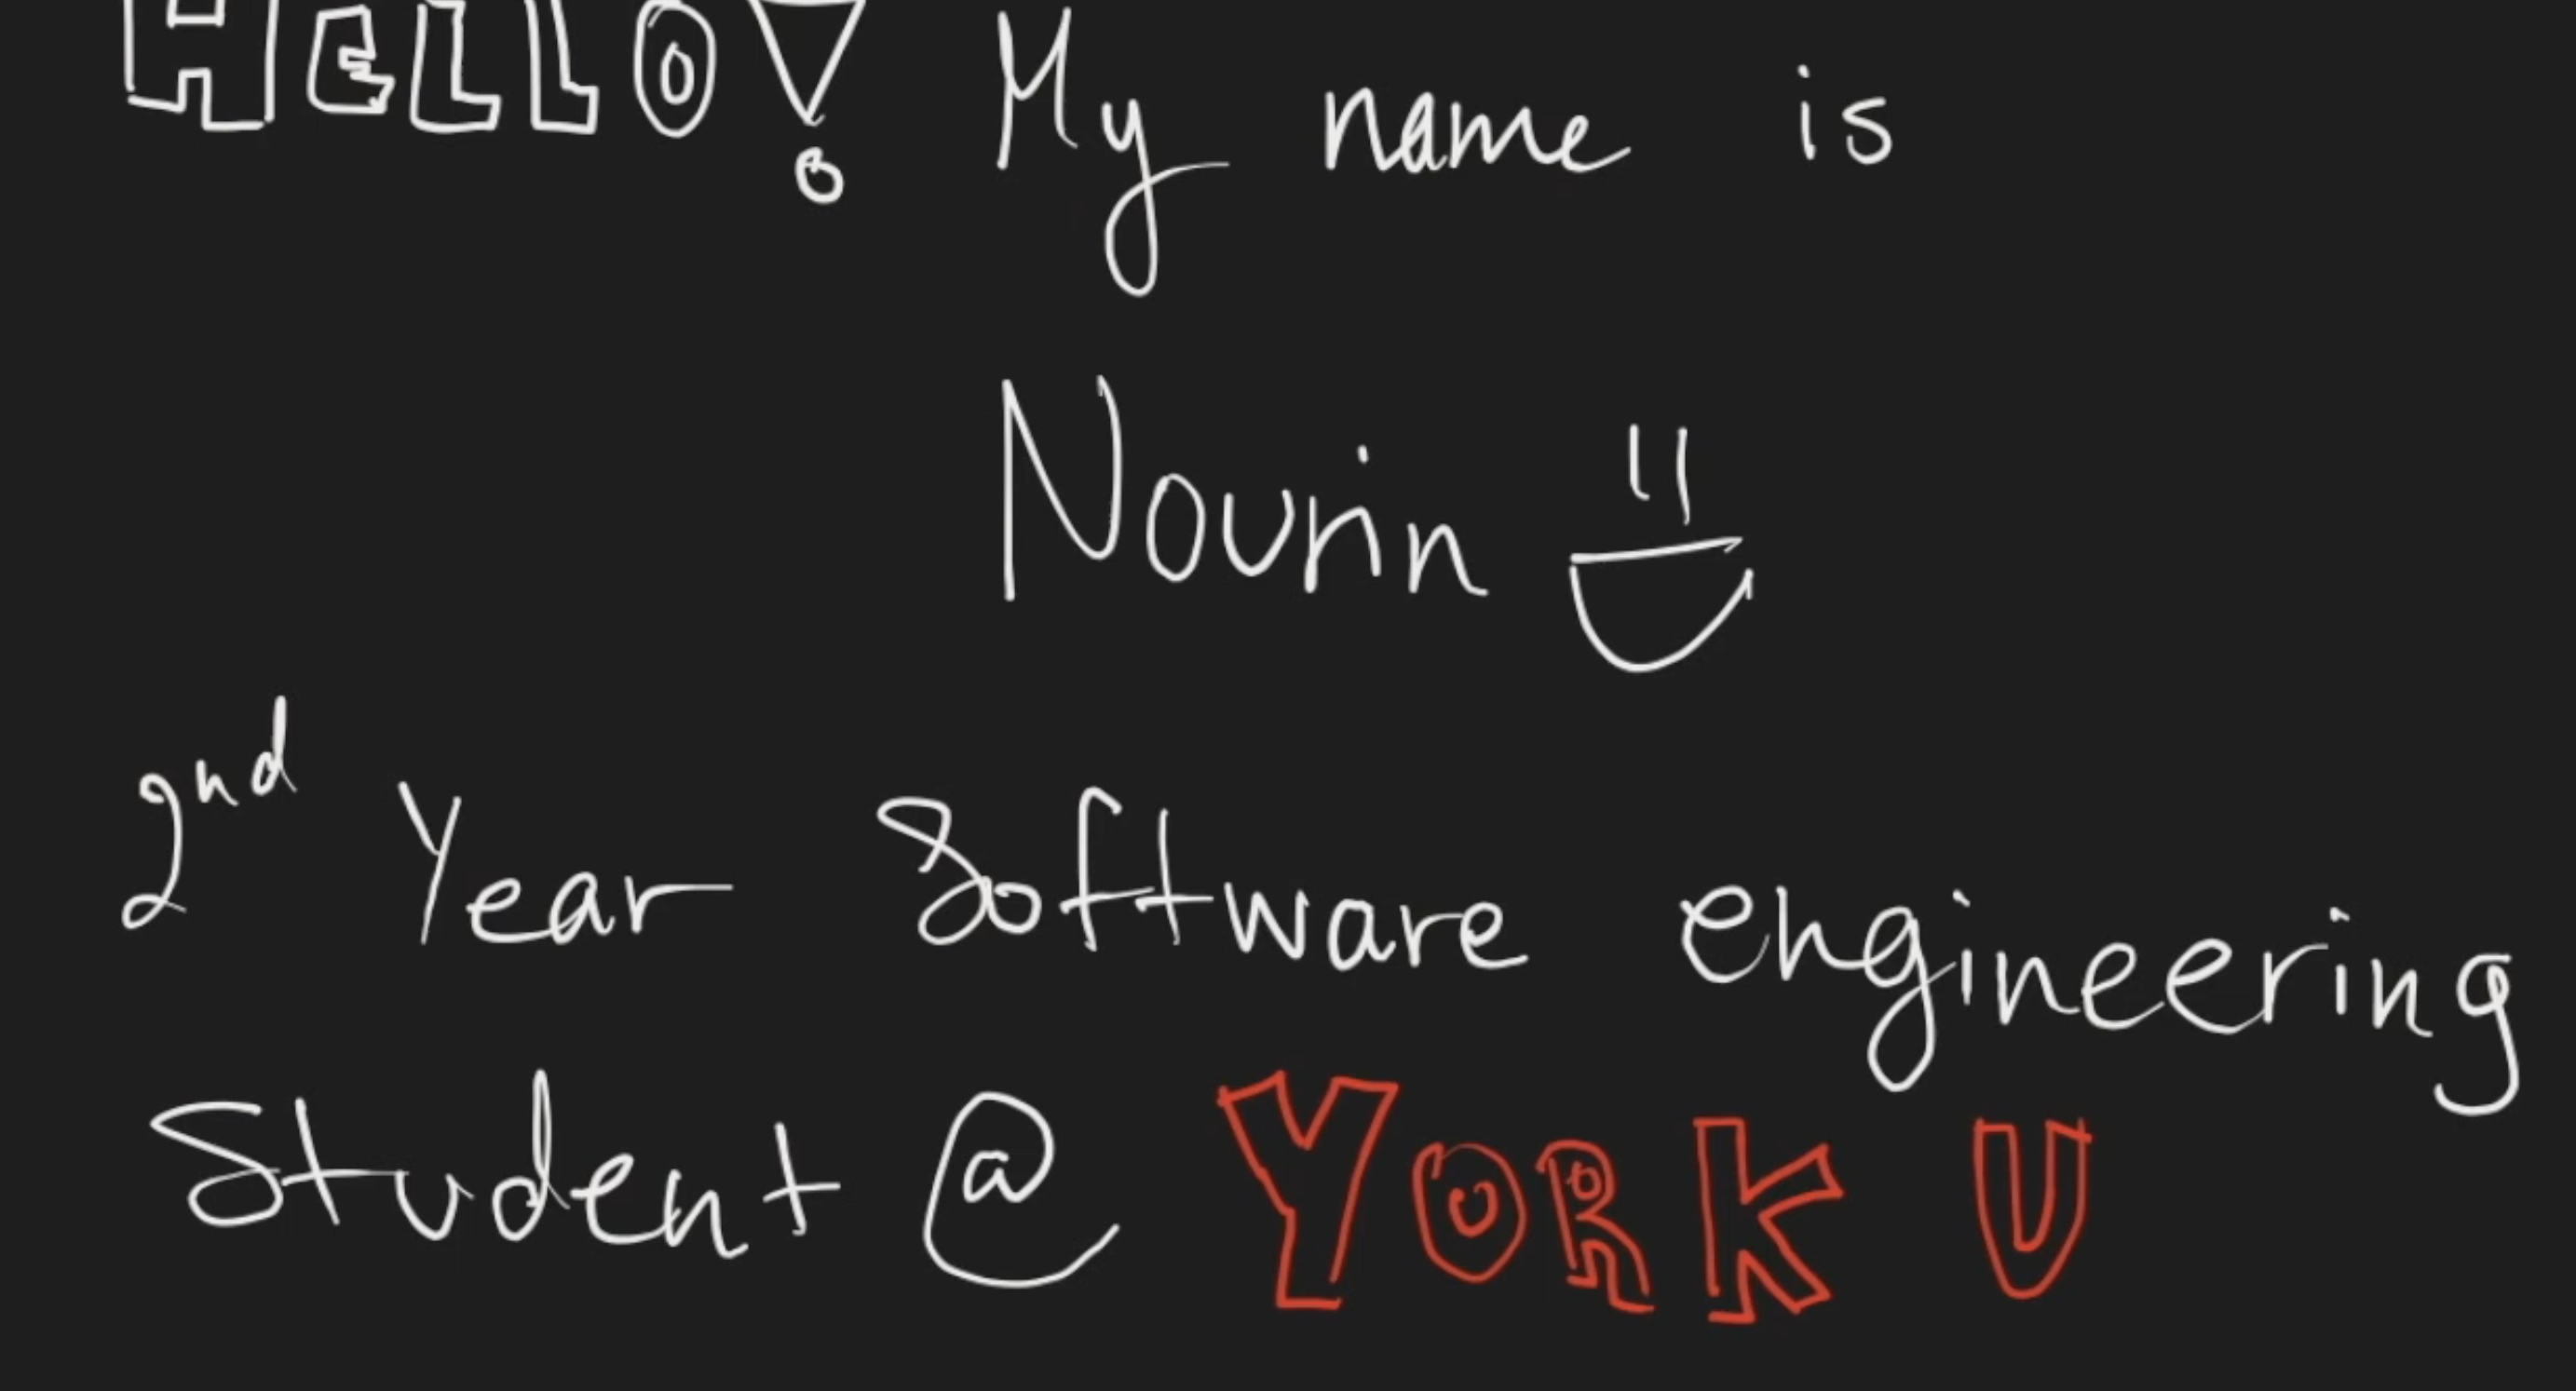 HELLO! My name is
Nourin
2nd Year Software engineering
Student @ YORK U